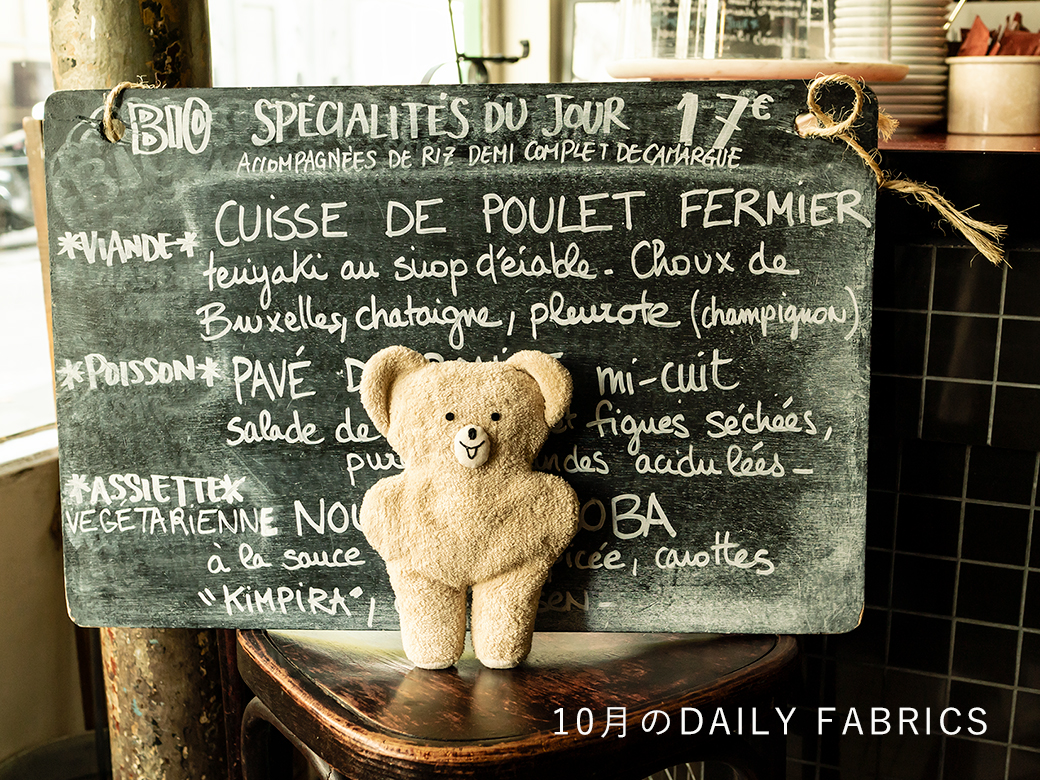 BIO SPÉCIALITÉS DU JOUR 17€
ACCOMPAGNÉES DE RIZ DEMI COMPLET DE CAMARGUE
*VIANDE* CUISSE DE POULET FERMIER
teriyaki au sirop d'érable. Choux de
Bruxelles, chataigne, pleurote (champignon)
*POISSON* PAVÉ mi-cuit
salade de figues séchées,
acidulées-
*ASSIETTE*
VEGETARIENNE
à la sauce carottes
"KIMPIRA",
10月のDAILY FABRICS